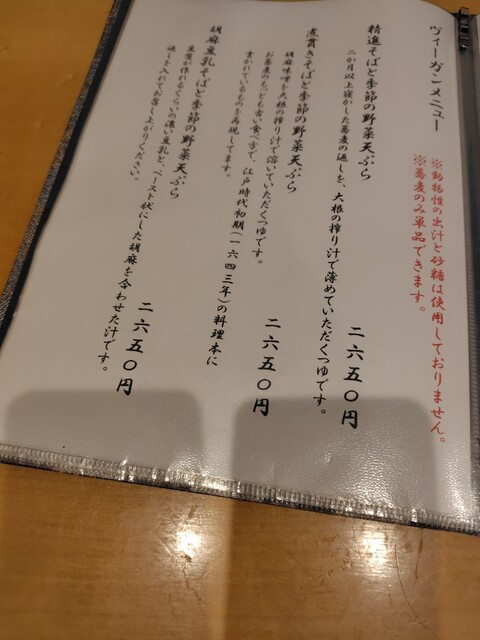 ヴィーガンメニュー
※動物性の出汁と砂糖は使用しておりません。
※蕎麦のみ単品できます。
精進そばと季節の野菜天ぷら
二六五〇円
二か月以上寝かした蕎麦の返しを、大根の搾り汁で薄めていただくつゆです。
煮貫きそばと季節の野菜天ぷら
二六五〇円
胡麻味噌を大根の搾り汁で溶いていただくつゆです。
お蕎麦のもっとも古い食べ方で、江戸時代初期(一六四三年)の料理本に
書かれているものを再現してます。
胡麻豆乳そばと季節の野菜天ぷら
二六五〇円
豆腐が作れるくらいの濃い豆乳と、ペースト状にした胡麻を合わせた汁です。
返しを入れてお召し上がりください。